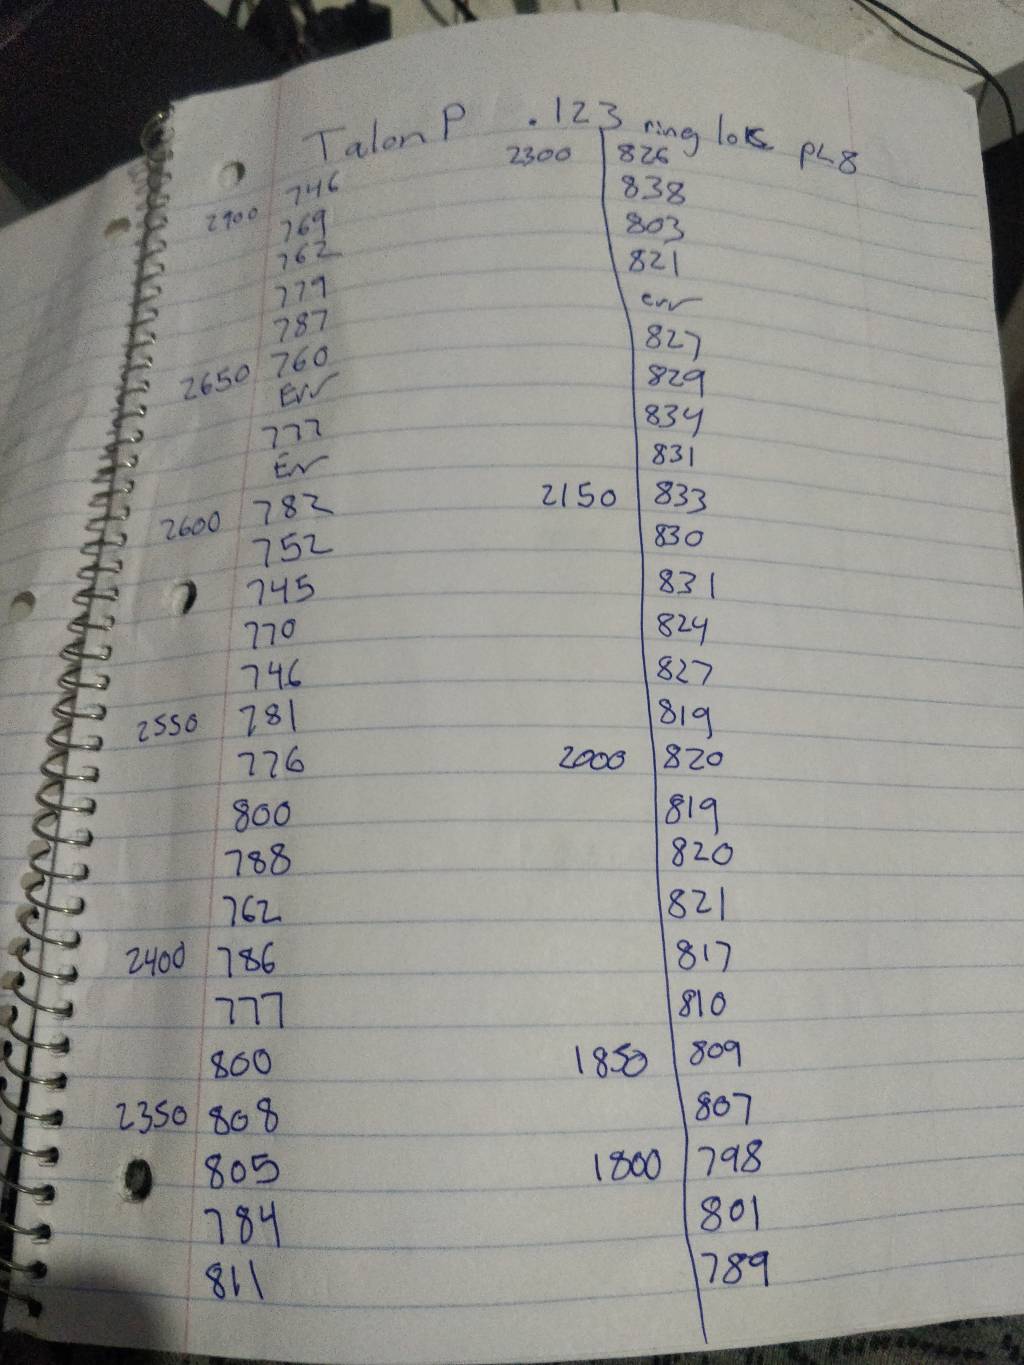 Talon P .123 ring loks pL8
746
2900 769
762
779
787
2650 760
Err
777
Err
2600 782
752
745
770
746
2550 781
776
800
788
762
2400 786
777
800
2350 808
805
784
811
2300 826
838
803
821
err
827
829
834
831
2150 833
830
831
824
827
819
2000 820
819
820
821
817
810
1850 809
807
1800 798
801
789